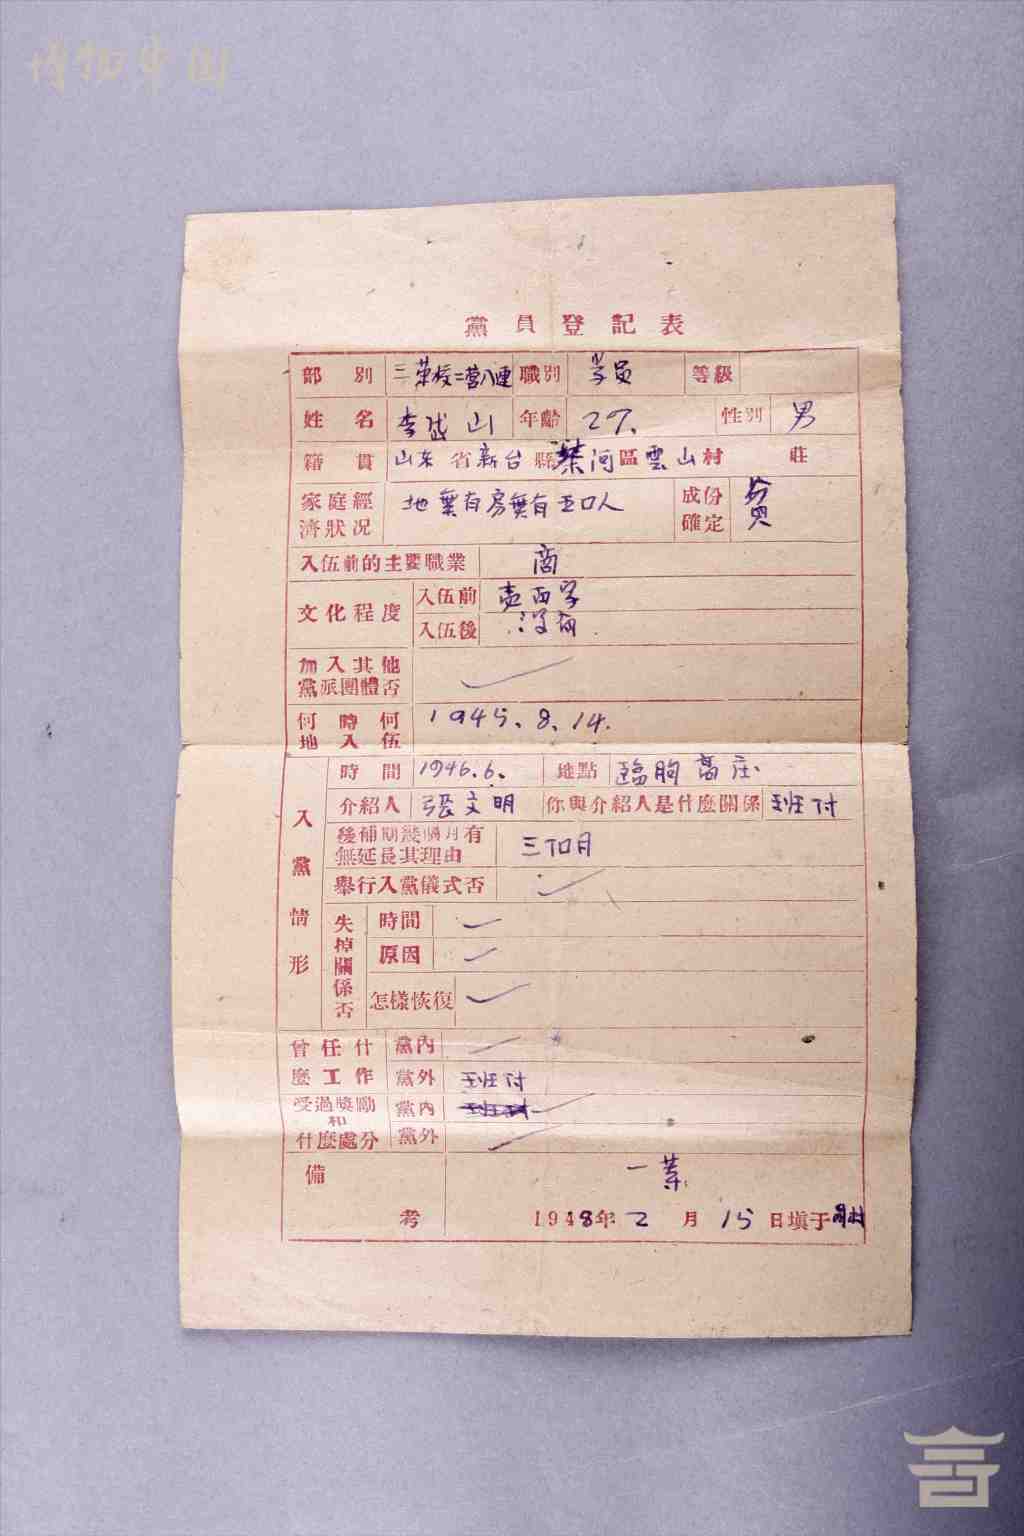 博物中国
黨員登記表
部別 三荣校二营八連 職別 学员 等級
姓名 李岱山 年齡 27. 性別 男
籍貫 山东省新台縣柴河區雲山村 莊
家庭經濟狀況 地無有房無有五口人 成份確定 貧
入伍前的主要職業 商
文化程度 入伍前 壹百字
入伍後 没有.
加入其他黨派團體否
何時何地入伍 1945.8.14.
入黨情形
時間 1946.6. 地點 臨朐高庄
介紹人 張文明 你與介紹人是什麼關係 班付
後補期幾個月有無延長其理由 三個月
舉行入黨儀式否
失掉關係否 時間
原因
怎樣恢復
曾任什麼工作 黨內
黨外 班付
受過獎勵和什麼處分 黨內 班付
黨外
備考 一葉
1948年2月15日填于